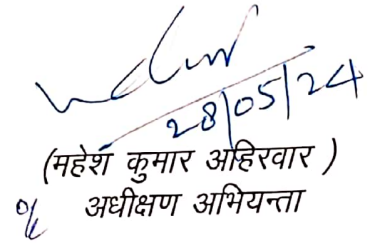 28/05/24
(महेश कुमार अहिरवार )
अधीक्षण अभियन्ता